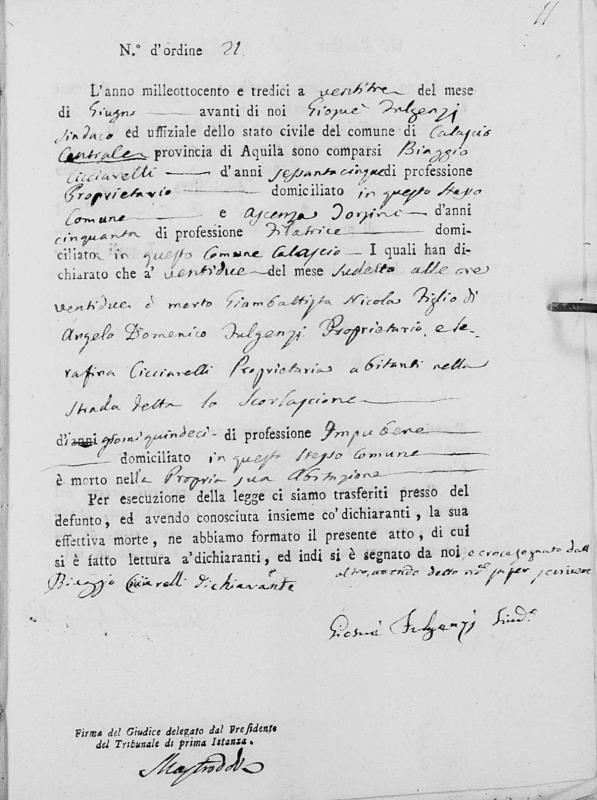 11
N.° d'ordine 21
L'anno milleottocento e tredici a ventitre del mese
di Giugno avanti di noi Giosuè Fulgenzj
Sindaco ed uffiziale dello stato civile del comune di Calascio
Centrale provincia di Aquila sono comparsi Biaggio
Cicciarelli d'anni sessantacinque di professione
Proprietario domiciliato in questo stesso
Comune e Ascenza d'anni
cinquanta di professione Filatrice domi-
ciliato in questo Comune Calascio I quali han di-
chiarato che a' ventidue del mese sudetto alle ore
ventidue è morto Giambattista Nicola Figlio di
Angelo Domenico Fulgenzj Proprietario, e Se-
rafina Cicciarelli Proprietaria abitanti nella
Strada detta lo
di anni giorni quindeci di professione Impubere
domiciliato in questo stesso Comune
è morto nella Propria sua Abitazione
Per esecuzione della legge ci siamo trasferiti presso del
defunto, ed avendo conosciuta insieme co' dichiaranti, la sua
effettiva morte, ne abbiamo formato il presente atto, di cui
si è fatto lettura a' dichiaranti, ed indi si è segnato da noi, e crocesegnato dall
altro, avendo detto non saper scrivere
Biaggio Cicciarelli dichiarante
Giosuè Fulgenzj Sind.°
Firma del Giudice delegato dal Presidente
del Tribunale di prima Istanza.